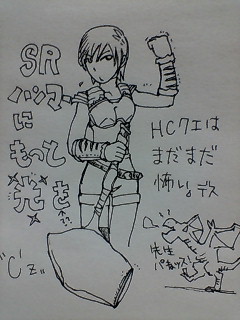 SR
ハンマ
に
もっと
発を
HCクエは
まだまだ
怖い。デス
先生
パネッス
"C'z"